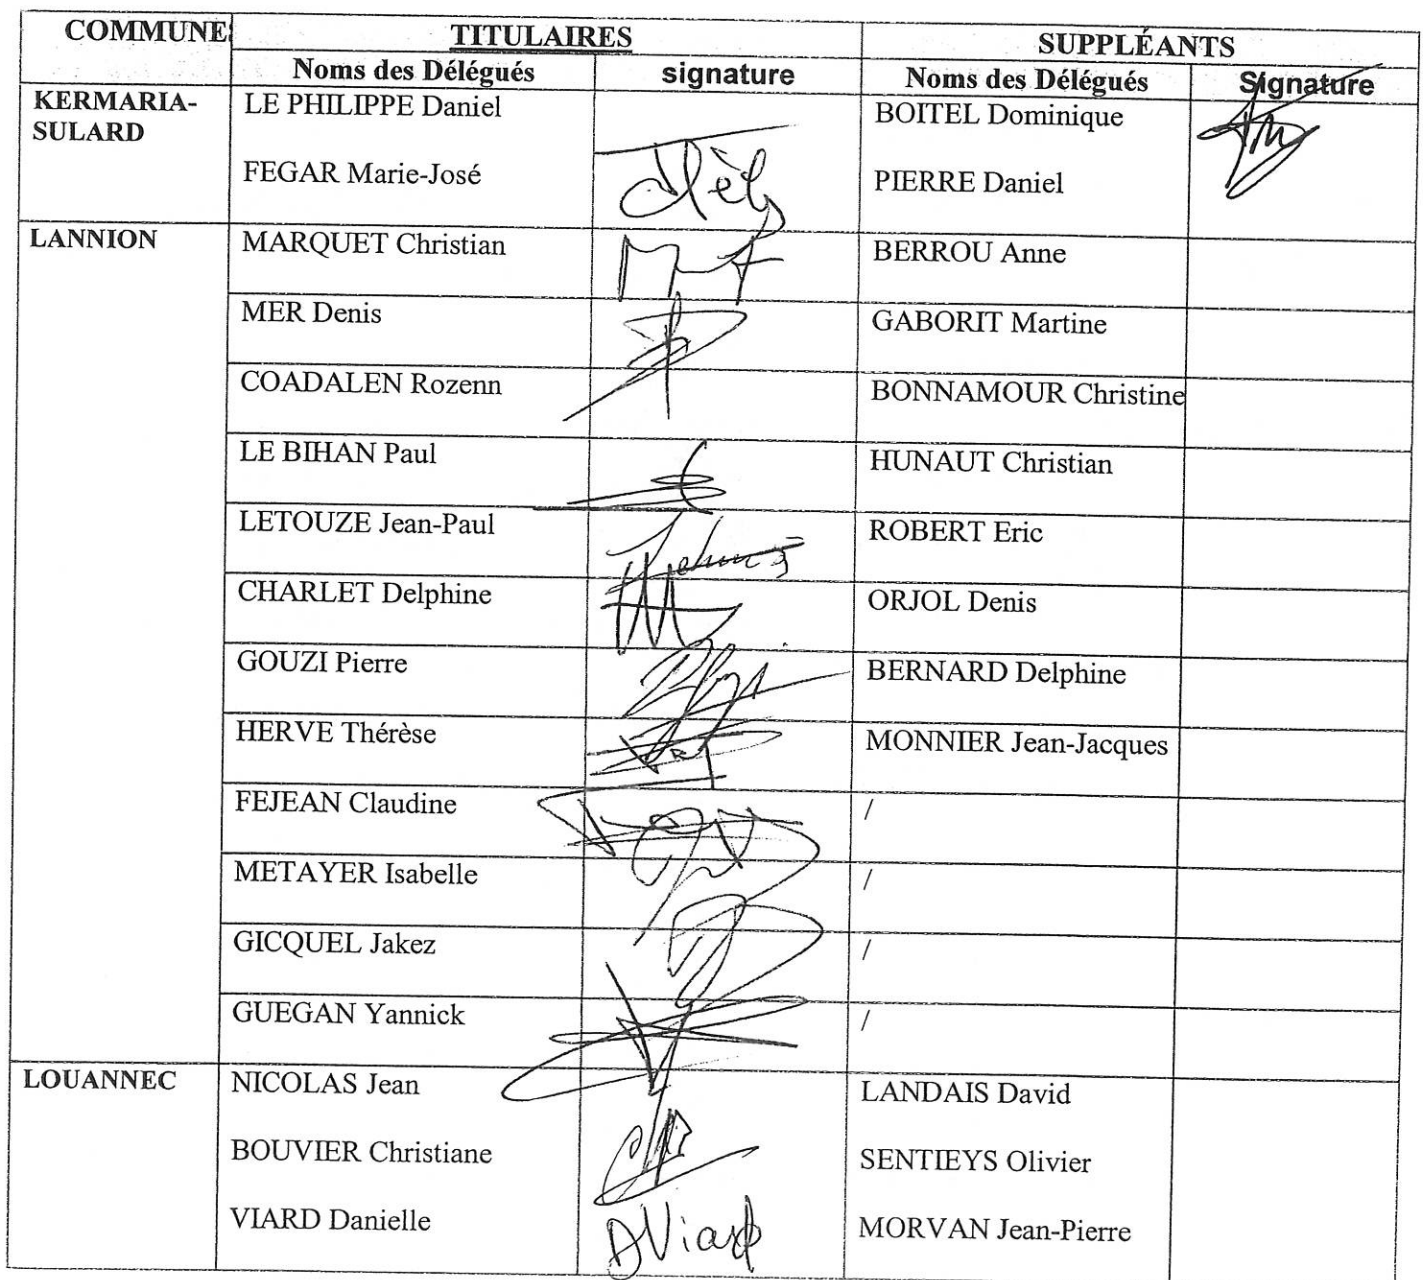 COMMUNE TITULAIRES SUPPLÉANTS
Noms des Délégués signature Noms des Délégués Signature
KERMARIA-SULARD LE PHILIPPE Daniel BOITEL Dominique
FEGAR Marie-José PIERRE Daniel
LANNION MARQUET Christian BERROU Anne
MER Denis GABORIT Martine
COADALEN Rozenn BONNAMOUR Christine
LE BIHAN Paul HUNAUT Christian
LETOUZE Jean-Paul ROBERT Eric
CHARLET Delphine ORJOL Denis
GOUZI Pierre BERNARD Delphine
HERVE Thérèse MONNIER Jean-Jacques
FEJEAN Claudine /
METAYER Isabelle /
GICQUEL Jakez /
GUEGAN Yannick /
LOUANNEC NICOLAS Jean LANDAIS David
BOUVIER Christiane SENTIEYS Olivier
VIARD Danielle DViard MORVAN Jean-Pierre